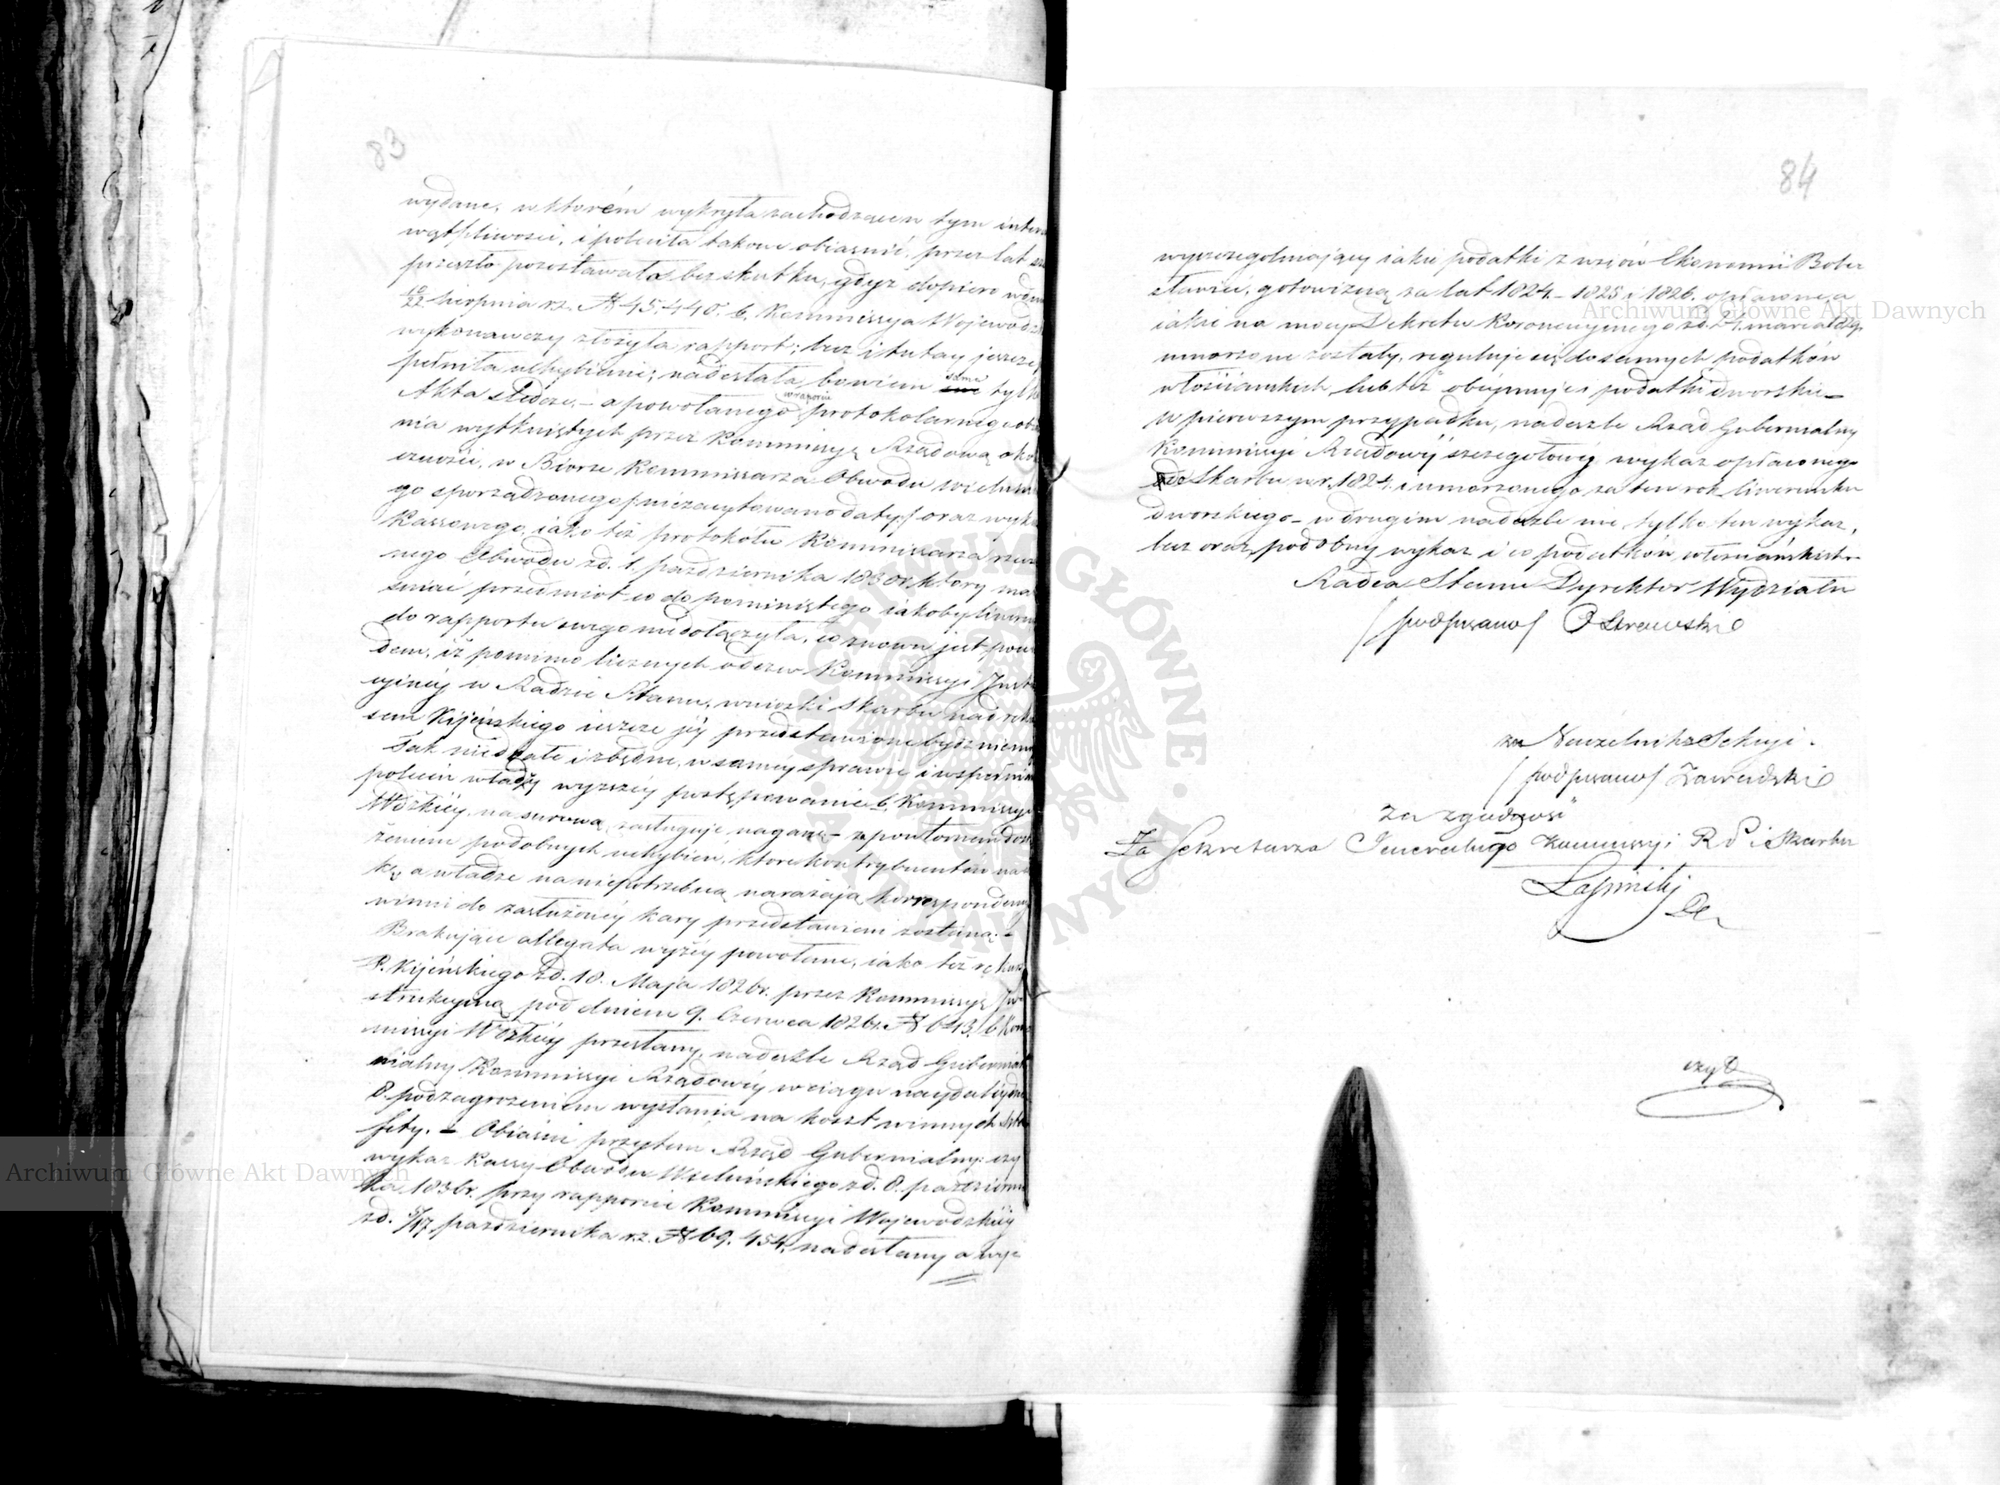 83
wydane, w którém wykryła zachodzące w tym inter
wątpliwości, i poleciła takowe obiaśnić, przez lat
przeszło pozostawało bez skutku, gdyż dopiero w dniu
10/22 Sierpnia r.z. N 45.440. b. Kommissya Wojewódz
wykonawczy złożyła rapport; lecz i tutay jeszcze
pełniła uchybienie; nadesłała bowiem same tylko
Akta śledcze, – a powołanego w raporcie protokolarnego obia
nia wytkniętych przez Kommissyą Rządową okol
czności, w Biórze Kommissarza Obwodu Wieluńs
go sporządzonego /: niezacytowano daty :/ oraz wyka
Kassowego, iako też protokółu Kommissarza rzeczo
nego Obwodu z d. 1. października 1830 r. który ma
śniać przedmiot co do pominiętego iakoby liwerun
do rapportu swego niedołączyła, co znowu jest powo
dem, iż pomimo licznych odezw Kommissyi Instr
cyjney w Radzie Stanu, wnioski Skarbu nad rekur
sem Kijeńskiego ieszcze jéy przedstawione bydź niemog
Tak niedbałe i zbędne, w samey sprawie i w spełnieniu
poleceń władzy wyższéy postępowanie b. Kommissyi
Wdzkiéy, na surową zasługuje naganę – z ponowieniem
żeniem podobnych uchybień, które kontrybuentów na
kę a władze na niepotrzebną narażają korrespondency
winni do zasłużonéy kary przedstawieni zostaną. –
Brakujące allegata wyżéy powołane, iako też rekurs
P. Kijeńskiego z d. 18. Maja 1826 r. przez Kommissyę In
strukcyjną pod dniem 9. Czerwca 1826 r. N 6413. b. Kom
missyi Wdzkiéy przesłany, nadeszle Rząd Guber
nialny Kommissyi Rządowéy w ciągu naydaléy dni
8. pod zagrożeniem wysłania na koszt winnych Szta
fety. – Obiaśni przytem Rząd Gubernialny: czy
wykaz Kassy Obwodu Wieluńskiego z d. 8. październi
ka 1836 r. przy rapporcie Kommissyi Wojewódzkiéy
z d. 5/17 października r.z. N 69.454. nadesłany a wy-
84
wyszczególniający iakie podatki z wsiów Ekonomii Bobr
stawice, gotowizną za lat 1824. – 1825 i 1826. opłacone a
iakie na mocy Dekretu Koronacyjnego z d. 24. maia 1829.
umorzone zostały, reguluje się do samych podatków
włościańskich lub też obejmuje i podatki dworskie –
W pierwszym przypadku, nadeszle Rząd Gubernialny
Kommissyi Rządowéy szczegółowy wykaz opłaconego
do Skarbu w r. 1824. i umorzonego za ten rok liwerunku
dworskiego – w drugim nadeszle nie tylko ten wykaz,
lecz oraz podobny wykaz i co podatków włościańskich. –
Radca Stanu Dyrektor Wydziału
/podpisano/ Ostrowski
za Naczelnika Sekcyi.
/podpisano/ Zawadzki
Za zgodność
Za Sekretarza Jeneralnego Kommissyi R. P. i Skarbu
Łapiński
czyt